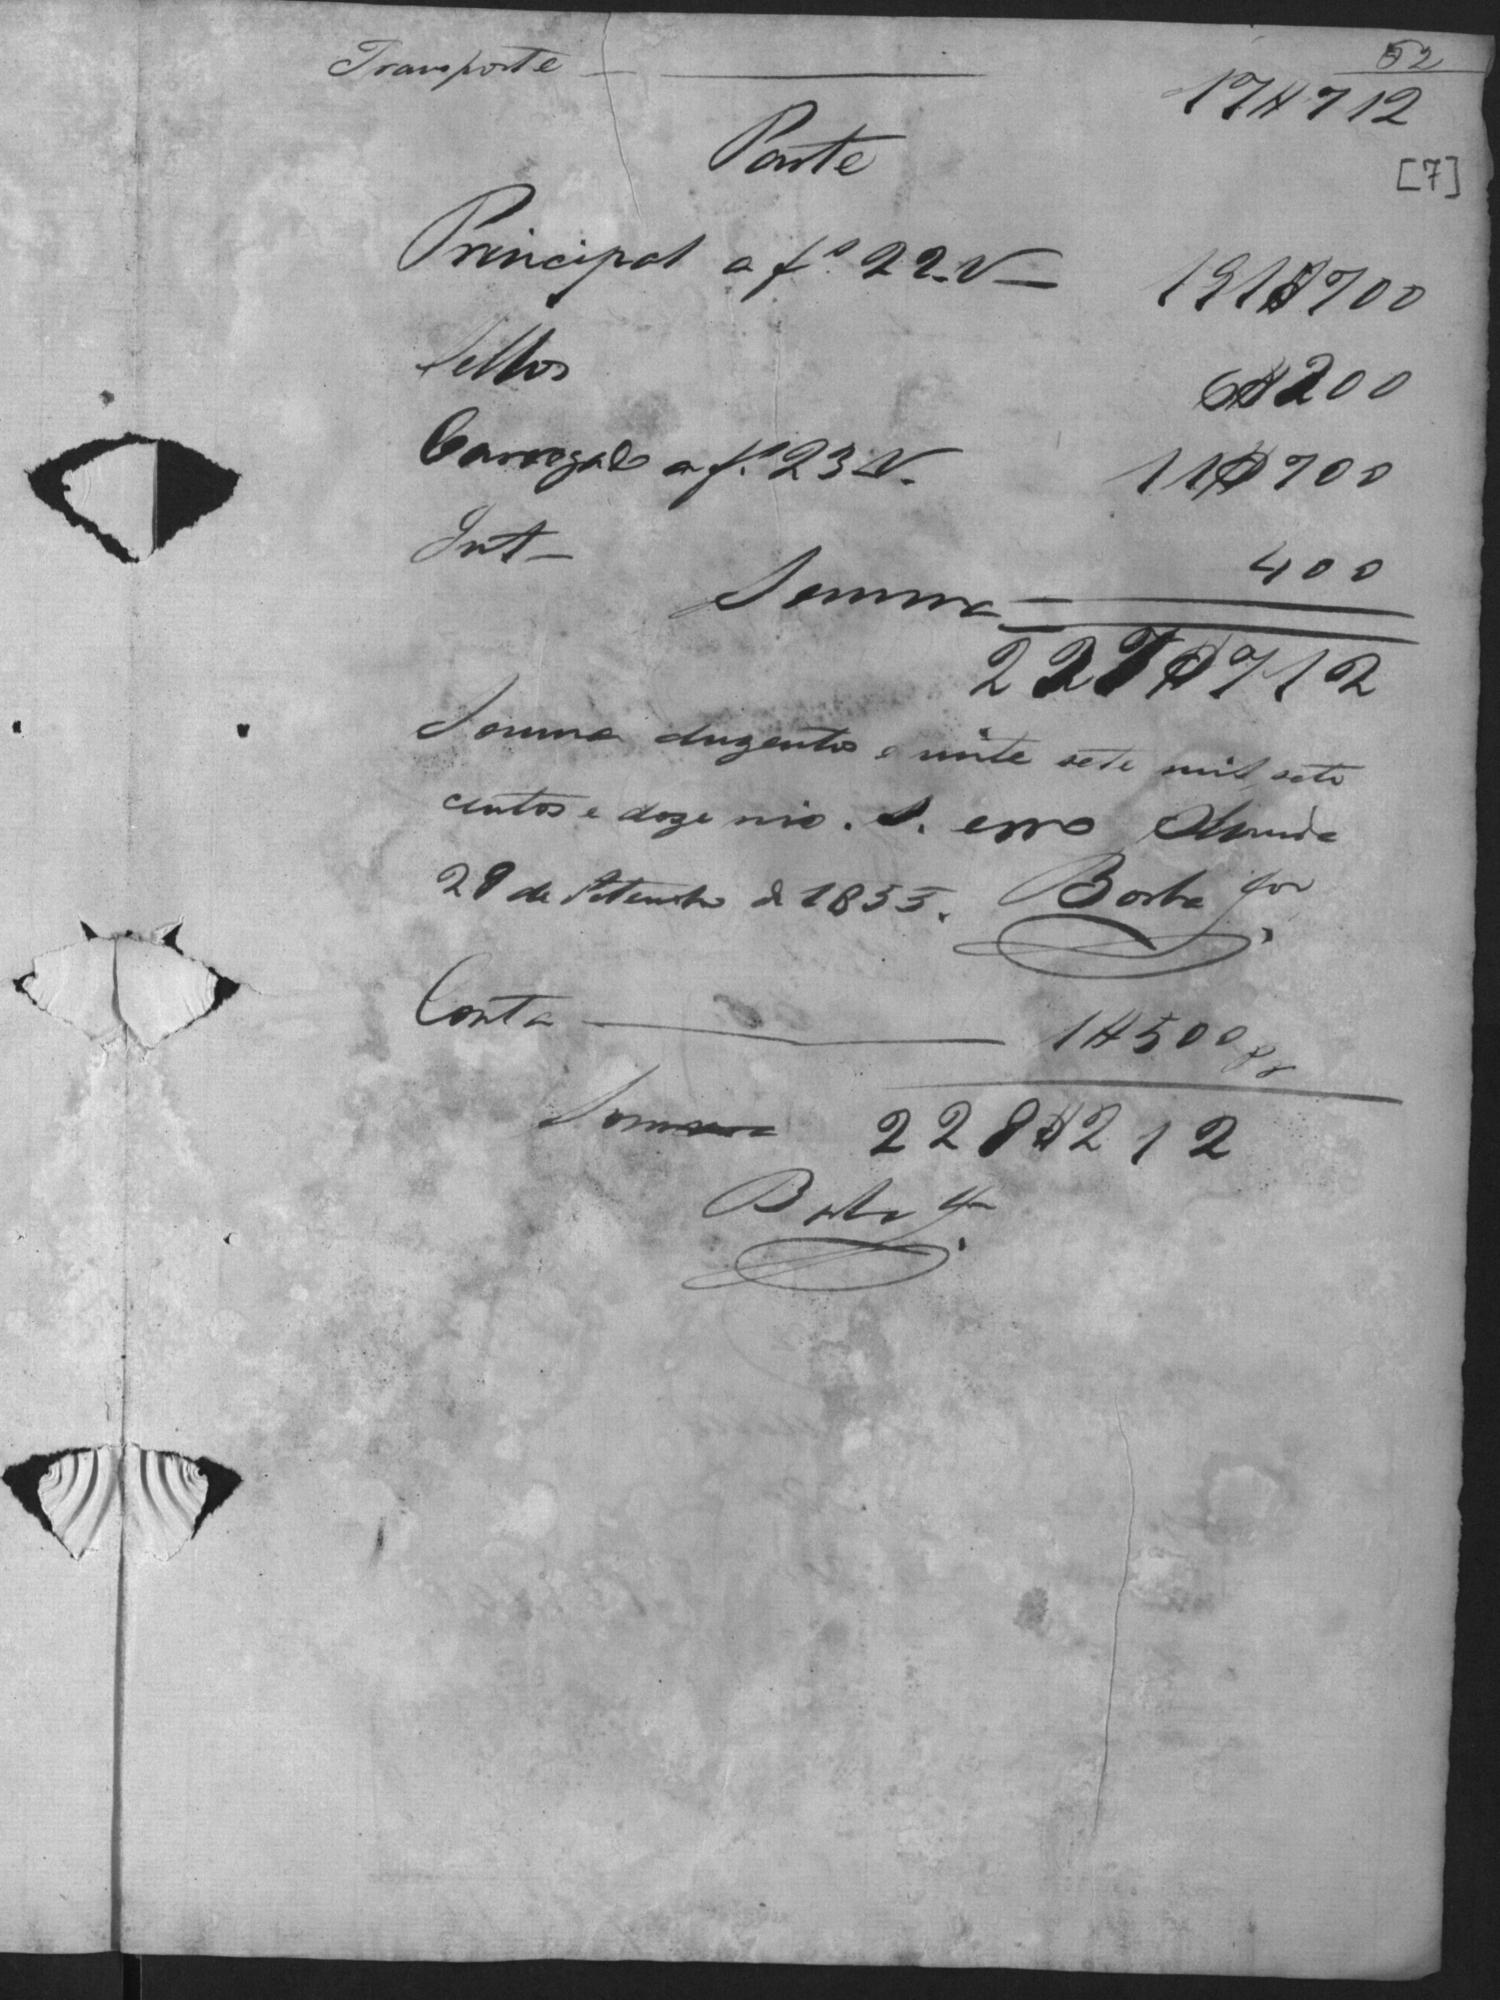 52
Transporte 17$712
[7]
Parte
Principal a fs. 22.V 191$700
Sellos 6$200
a fs. 23 V. 11$700
400
Somma
227$712
Somma duzentos e vinte sete mil sete
centos e doze reis. S. erro
29 de Setembro de 1855. Borba Jor
Conta 1$500
Somma 228$212
Borba Jor